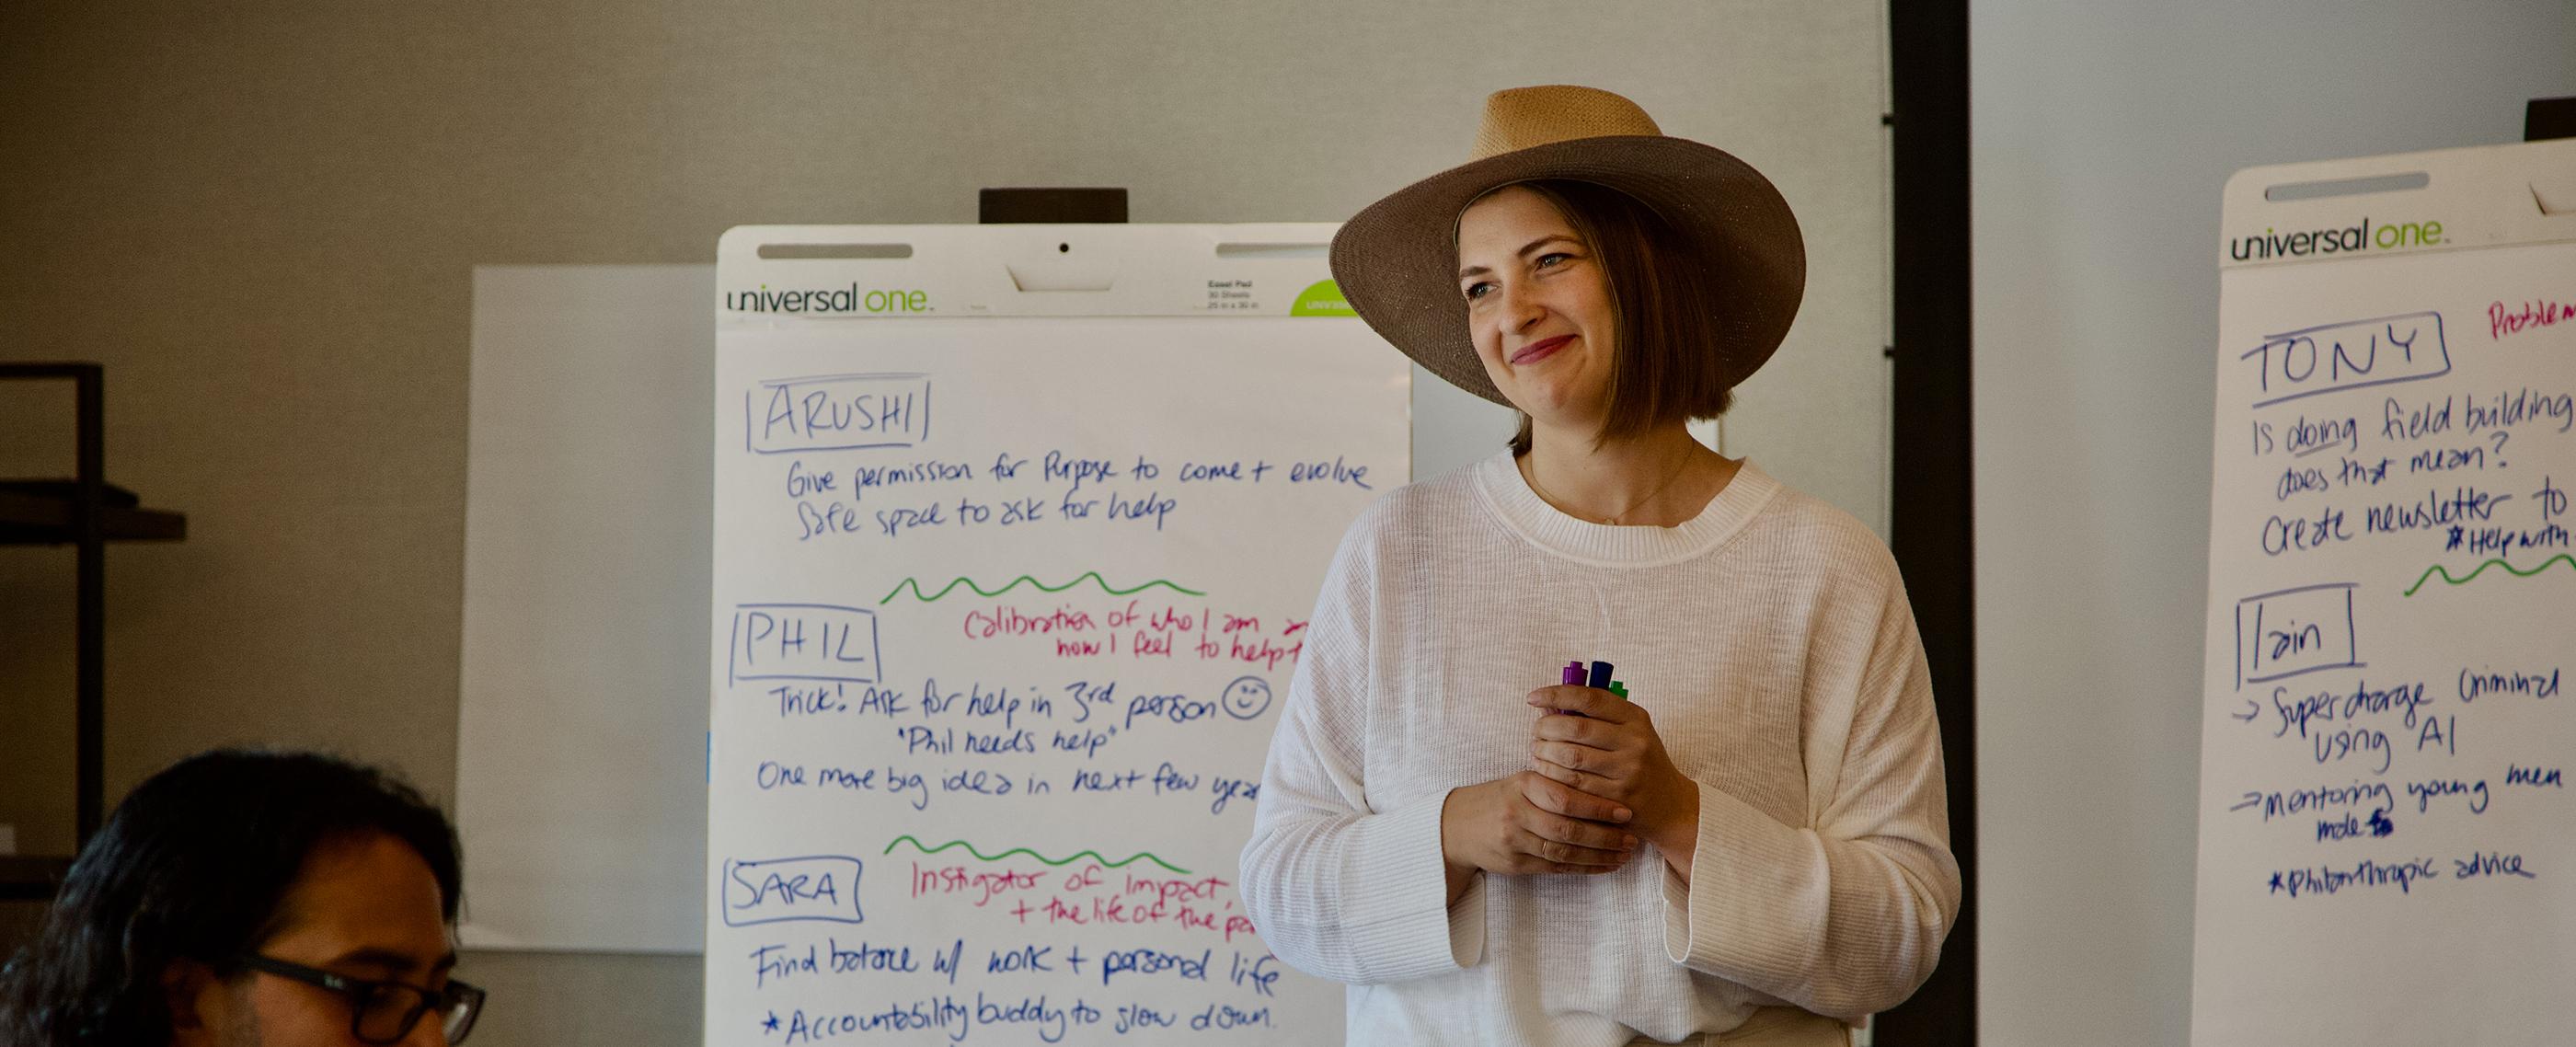 universal one
Easel Pad
30 Sheets
25 in x 30 in
ARUSHI
Give permission for Purpose to come + evolve
Safe space to ask for help
PHIL
Calibration of who I am
how I feel to help
Trick! Ask for help in 3rd person
"Phil needs help"
One more big idea in next few
SARA
Instigator of impact,
+ the life of the
Find balance w/ work + personal life
*Accountability buddy to slow down.
universal one
TONY
Is doing field building
does that mean?
Create newsletter to
*Help with
Iain
→ Supercharge Criminal
using AI
→ Mentoring young men
*Philanthropic advice